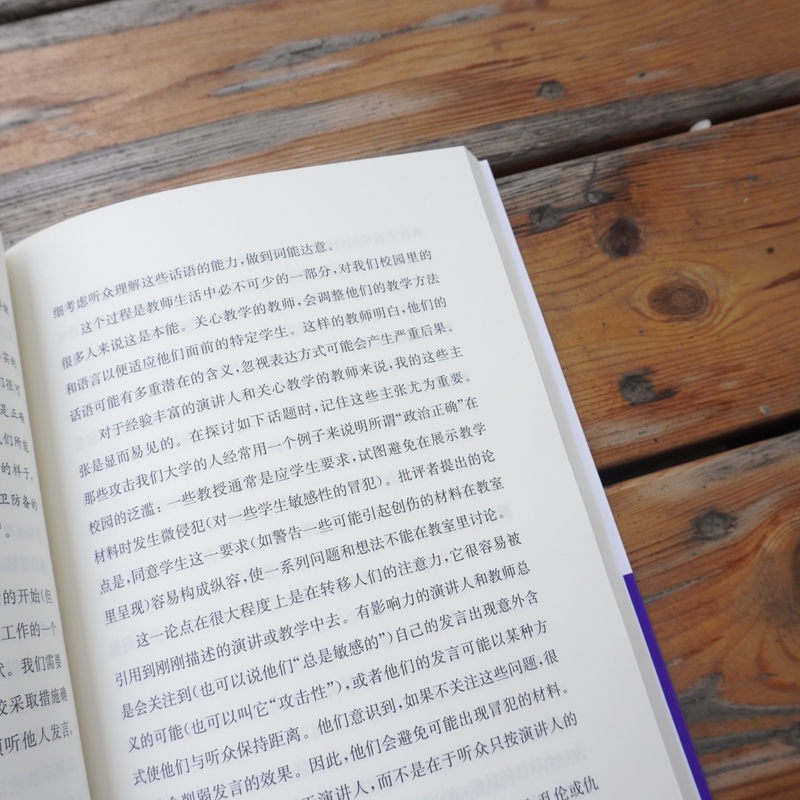 实的
们很可
是正确
们所能
的样子、
卫防备的
”。
的开始(但
工作的一个
我们需要
采取措施确
倾听他人发言;
细考虑听众理解这些话语的能力,做到词能达意。
这个过程是教师生活中必不可少的一部分,对我们校园里的
很多人来说这是本能。关心教学的教师,会调整他们的教学方法
和语言以便适应他们面前的特定学生。这样的教师明白,他们的
话语可能有多重潜在的含义,忽视表达方式可能会产生严重后果。
对于经验丰富的演讲人和关心教学的教师来说,我的这些主
张是显而易见的。在探讨如下话题时,记住这些主张尤为重要。
那些攻击我们大学的人经常用一个例子来说明所谓“政治正确”在
校园的泛滥:一些教授通常是应学生要求,试图避免在展示教学
材料时发生微侵犯(对一些学生敏感性的冒犯)。批评者提出的论
点是,同意学生这一要求(如警告一些可能引起创伤的材料在教室
里呈现)容易构成纵容,使一系列问题和想法不能在教室里讨论。
这一论点在很大程度上是在转移人们的注意力,它很容易被
引用到刚刚描述的演讲或教学中去。有影响力的演讲人和教师总
是会关注到(也可以说他们“总是敏感的”)自己的发言出现意外含
义的可能(也可以叫它“攻击性”),或者他们的发言可能以某种方
式使他们与听众保持距离。他们意识到,如果不关注这些问题,很
会削弱发言的效果。因此,他们会避免可能出现冒犯的材料。
演讲人,而不是在于听众只按演讲人的
乱伦或仇